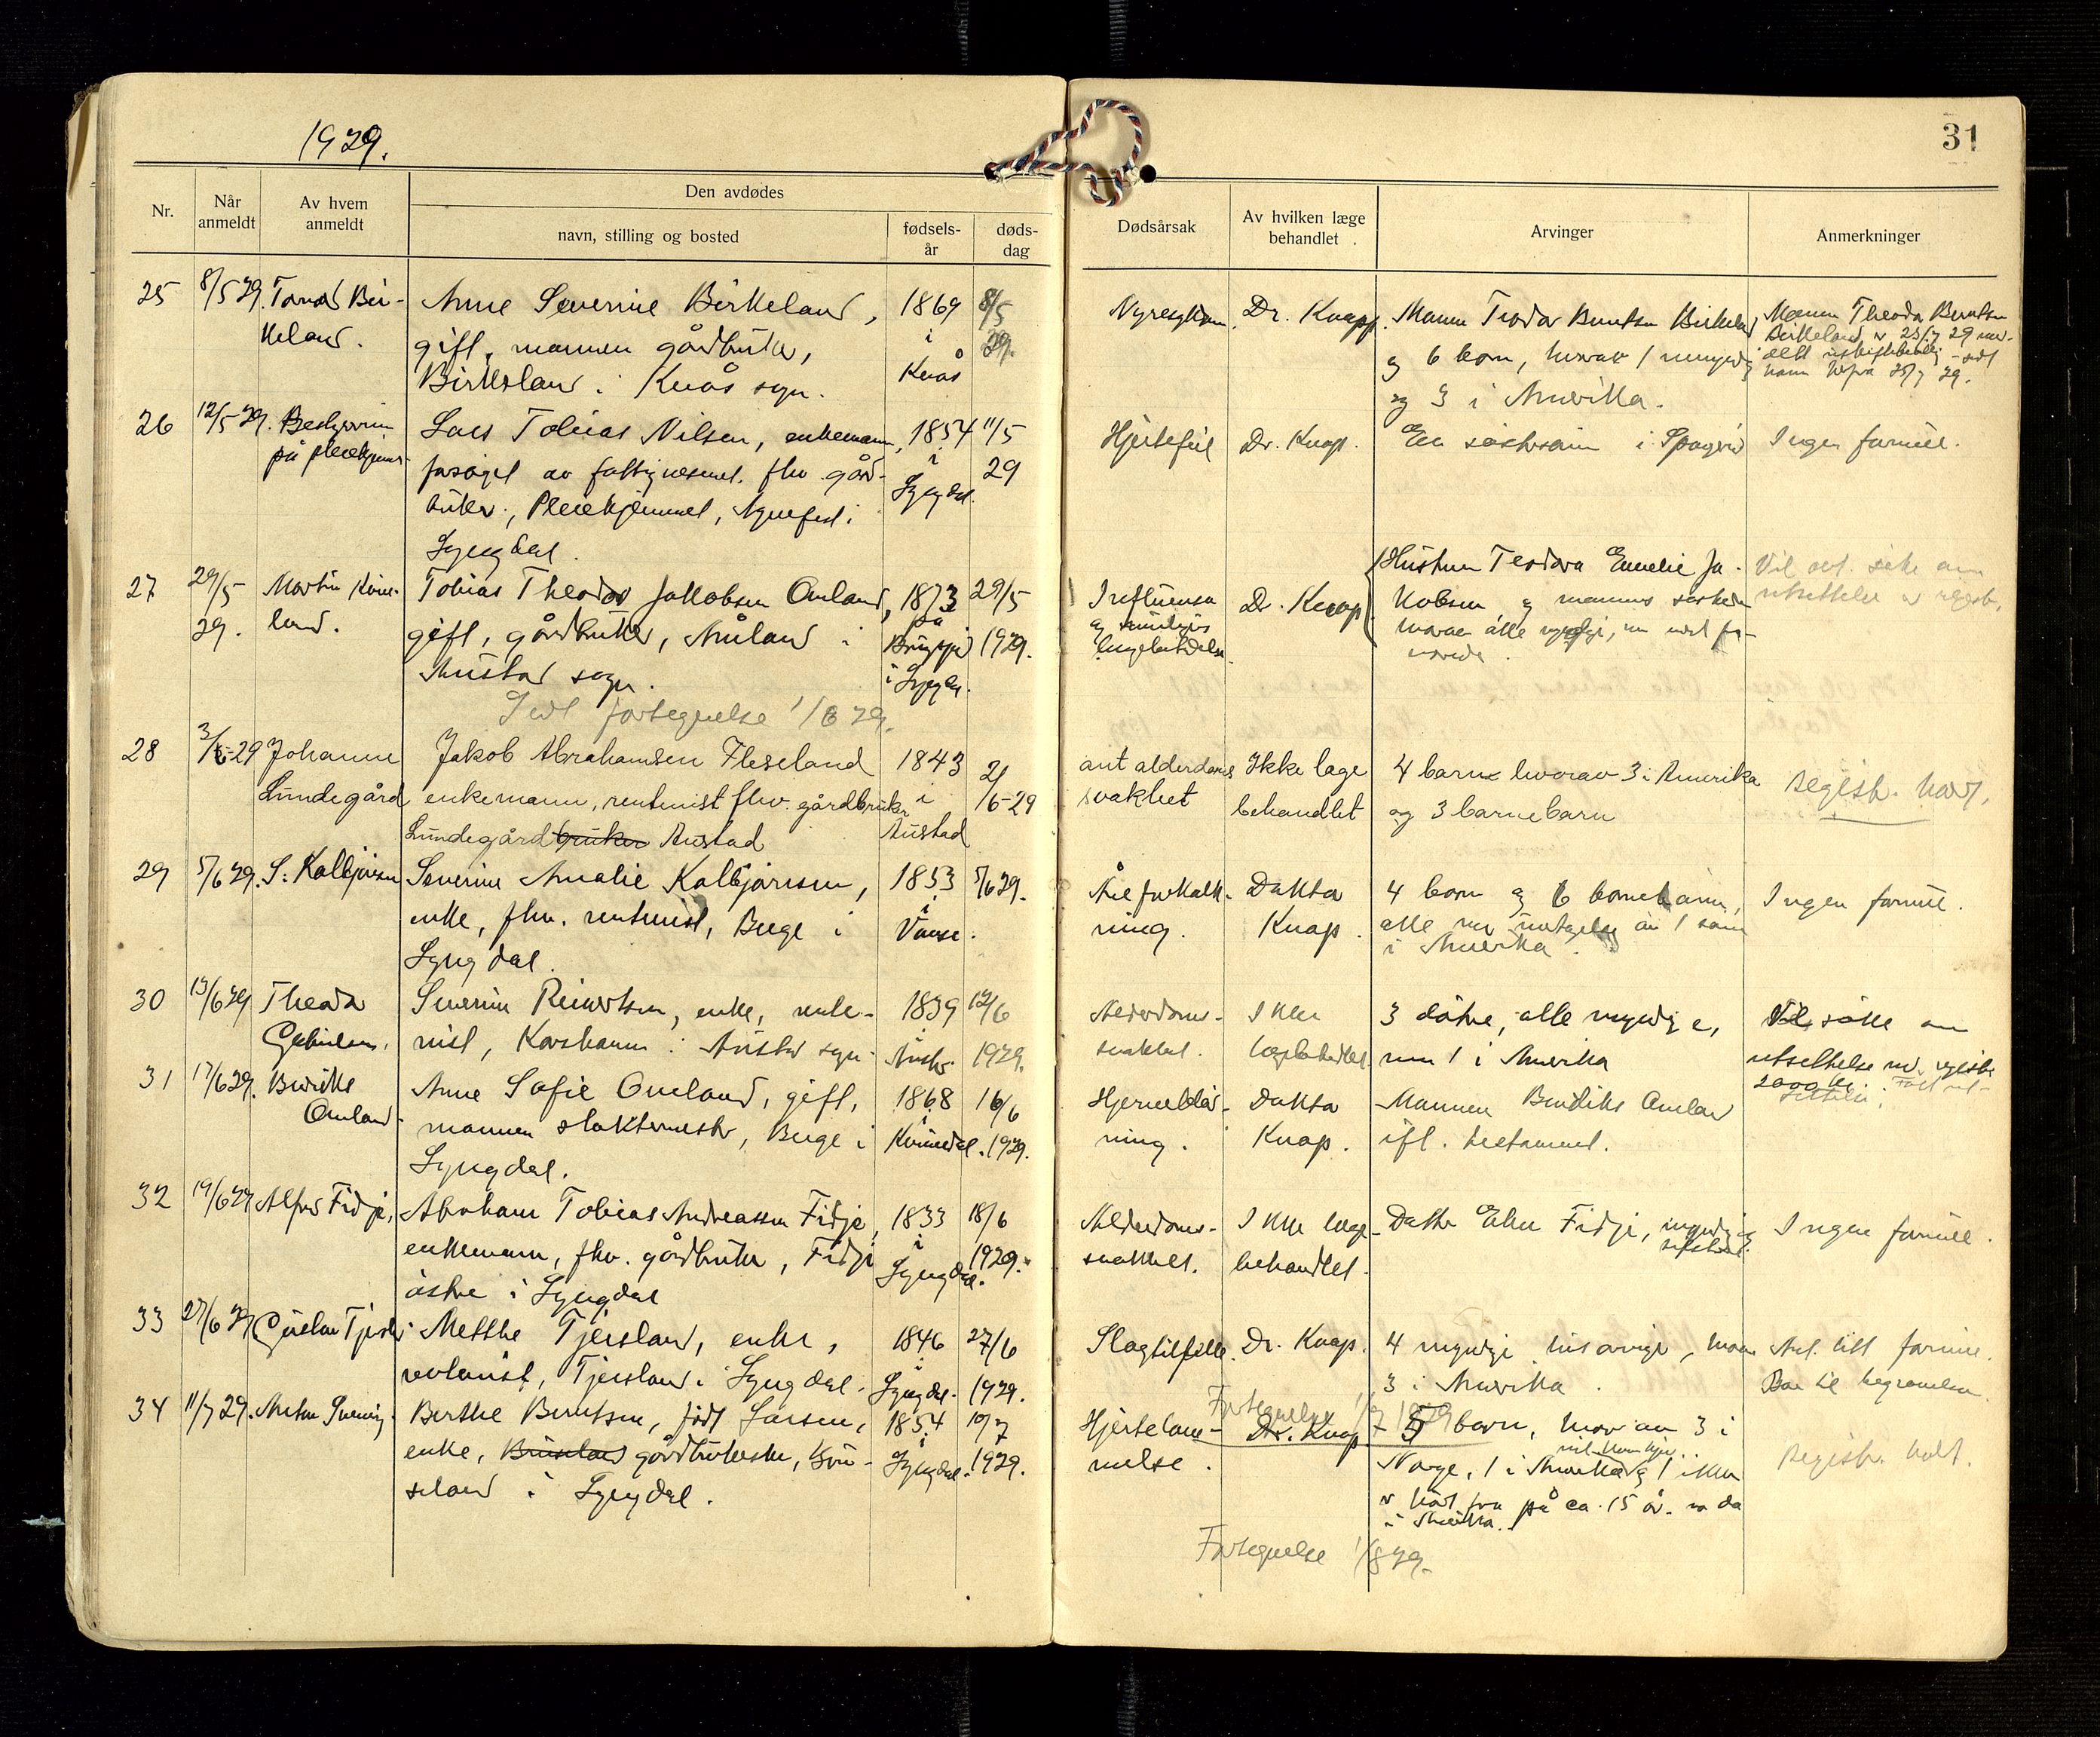 1929.
31
Nr.
Når anmeldt
Av hvem anmeldt
Den avdødes
navn, stilling og bosted
fødsels-år
døds-dag
Dødsårsak
Av hvilken læge behandlet
Arvinger
Anmerkninger
25 8/5 29. Bir-
keland.
Anne Severine Birkeland,
gift, mannen gårdbruker,
Birkeland i Kvås sogn.
1869
i
Kvås
8/5
29.
Nyresykdom. Dr. Knap.
Mann Teodor Berntsen Birkeland
og 6 barn, hvorav 1 umyndig
og 3 i Amerika.
Mannen Theodor Berntsen
Birkeland er 25/7 29 med-
delt
26 12/5 29. Bestyrerinn
på pleiehjemmet
Lars Tobias Nilsen, enkemann,
forsørget av fattigvesenet. fhv. gård-
bruker, Pleiehjemmet, Agnefest i
Lyngdal.
1854
i
Lyngdal.
11/5
29
Hjertefeil Dr. Knap.
En søstersønn i
Ingen formue.
27 29/5
29.
Martin Kvine-
land.
Tobias Theodor Jakobsen Omland,
gift, gårdbruker, Åmland i
Austad sogn.
1873
på
i Lyngdal.
29/5
1929.
Influensa
og
lungebetendelse.
Dr. Knap
Hustru Teodora Emelie Ja-
kobsen og mannens søsken
hvorav alle myndige,
Vil evt. søke om
utsettelse
Sendt fortegnelse 1/6 29.
28 3/6-29 Johanne
Lundegård
Jakob Abrahamsen Fleseland
enkemann, rentenist fhv. gårdbruker
Lundegård bruker Austad
1843
i
Austad
2/6-29
ant alderdoms
svakhet
Ikke læge
behandlet
4 barn hvorav 3 i Amerika
og 3 barnebarn
Registr. holdt.
29 5/6 29. S. Kolbjørnsen
Severine Amalie Kolbjørnsen,
enke, fhv. rentenist, Berge i
Lyngdal.
1853
i
Vanse.
5/6 29.
Åreforkalk-
ning.
Doktor
Knap.
4 barn og 6 barnebarn,
alle
i Amerika.
Ingen formue.
30 13/6 29 Theodor
Severine Reinertsen, enke, rente-
nist, Korshamn i Austad sogn.
1839
12/6
1929.
Alderdoms-
svakhet.
Ikke
lægebehandlet
3 døtre, alle myndige,
1 i Amerika
Vil søke om
utsettelse
2000 kr.
31 17/6 29. Bendikt
Omland
Anne Sofie Omland, gift,
mannen slaktermester, Berge i
Lyngdal.
1868
i
Kvinesdal.
16/6
1929.
Hjerneblød-
ning.
Doktor
Knap.
Mannen Bendikt Omland
ifl. testament.
32 19/6 29 Alfred Fidje,
Abraham Tobias Andreassen Fidje,
enkemann, fhv. gårdbruker, Fidje
østre i Lyngdal
1833
i
Lyngdal.
18/6
1929.
Alderdoms-
svakhet.
Ikke læge-
behandlet.
Datter Fidje, myndig
Ingen formue.
33 27/6 29
Metthe Tjersland, enke,
rentenist, Tjersland i Lyngdal.
1846
i
Lyngdal.
27/6
1929.
Slagtilfelle. Dr. Knap.
4 myndige livsarvinger, hvorav
3 i Amerika.
Ant. litt formue.
Bare til begravelsen.
Fortegnelse 1/7 1929
34 11/7 29.
Berthe Berntsen, født Larsen,
enke, gårdbrukerske,
seland i Lyngdal.
1854
i
Lyngdal.
10/7
1929.
Hjertelam-
melse.
Dr. Knap
5 barn, hvorav 3 i
Norge, 1 i Amerika og 1 ikke
er hørt fra på ca. 15 år. da
i Amerika.
Registr. holdt.
Fortegnelse 1/8 29.